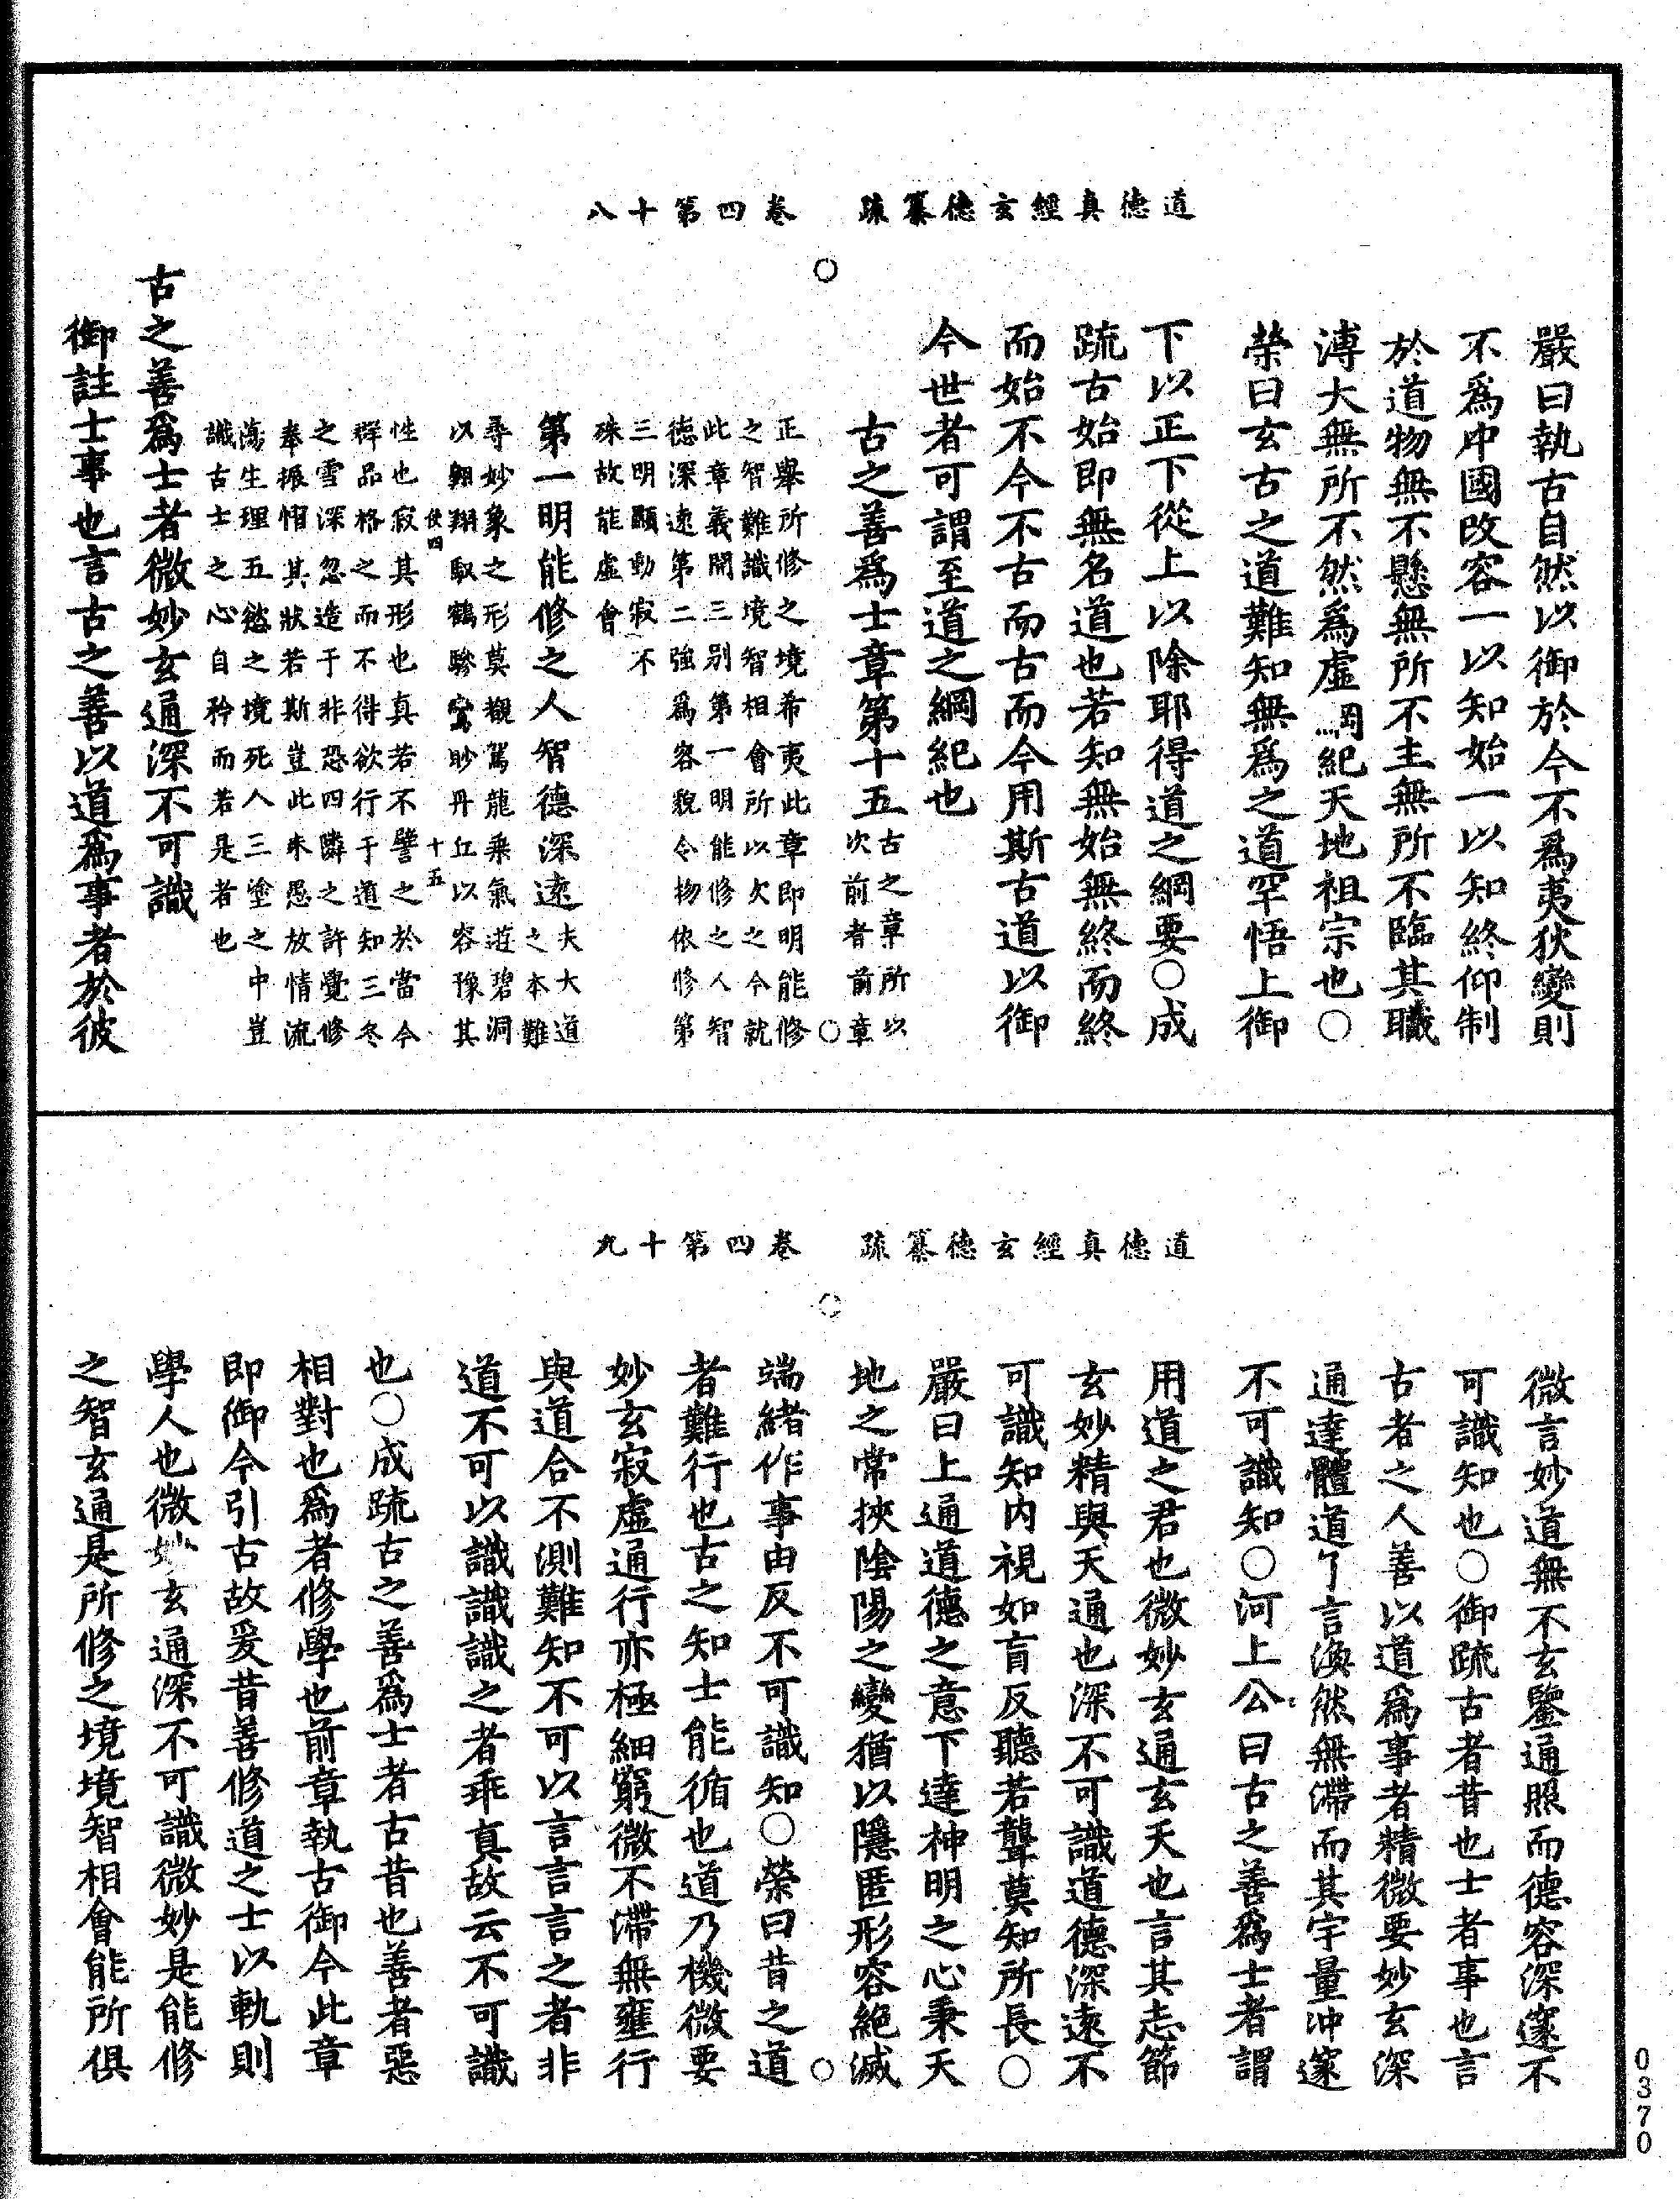 道德真經玄德纂疏　卷四第十八
嚴曰執古自然以御於今不爲夷狄變則
不爲中國改容一以知始一以知終仰制
於道物無不懸無所不主無所不臨其職
溥大無所不然爲虛綱紀天地祖宗也○
榮曰玄古之道難知無爲之道罕悟上御
下以正下從上以除耶得道之綱要○成
疏古始即無名道也若知無始無終而終
而始不今不古而古而今用斯古道以御
今世者可謂至道之綱紀也
古之善爲士章第十五古之章所以
次前者前章
正舉所修之境希夷此章即明能修
之智難識境智相會所以次之今就
此章義開三別第一明能修之人智
德深遠第二強爲容貌令物依修第
三明顯動寂不
殊故能虛會
第一明能修之人智德深遠夫大道
之本難
尋妙象之形莫覩駕龍乘氣遊碧洞
以翱翔馭鶴驂鸞眇丹丘以容豫其
使四　十五
性也寂其形也真若不譬之於當今
群品格之而不得欲行于道知三冬
之雪深忽造于非恐四隣之許覺修
奉振㦍其狀若斯豈此來愚放情流
蕩生理五慾之境死人三塗之中豈
識古士之心自矜而若是者也
古之善爲士者微妙玄通深不可識
御註士事也言古之善以道爲事者於彼
道德真經玄德纂疏　卷四第十九
微言妙道無不玄鑒通照而德容深邃不
可識知也○御疏古者昔也士者事也言
古者之人善以道爲事者精微要妙玄深
通達體道了言渙然無滯而其宇量沖邃
不可識知○河上公曰古之善爲士者謂
用道之君也微妙玄通玄天也言其志節
玄妙精與天通也深不可識道德深遠不
可識知内視如盲反聽若聾莫知所長○
嚴曰上通道德之意下達神明之心秉天
地之常挾陰陽之變猶以隱匿形容絕滅
端緒作事由反不可識知○榮曰昔之道
者難行也古之知士能循也道乃機微要
妙玄寂虛通行亦極細窮微不滯無壅行
與道合不測難知不可以言言言之者非
道不可以識識識之者乖真故云不可識
也○成疏古之善爲士者古昔也善者惡
相對也爲者修學也前章執古御今此章
即御今引古故爰昔善修道之士以軌則
學人也微妙玄通深不可識微妙是能修
之智玄通是所修之境境智相會能所俱
0370